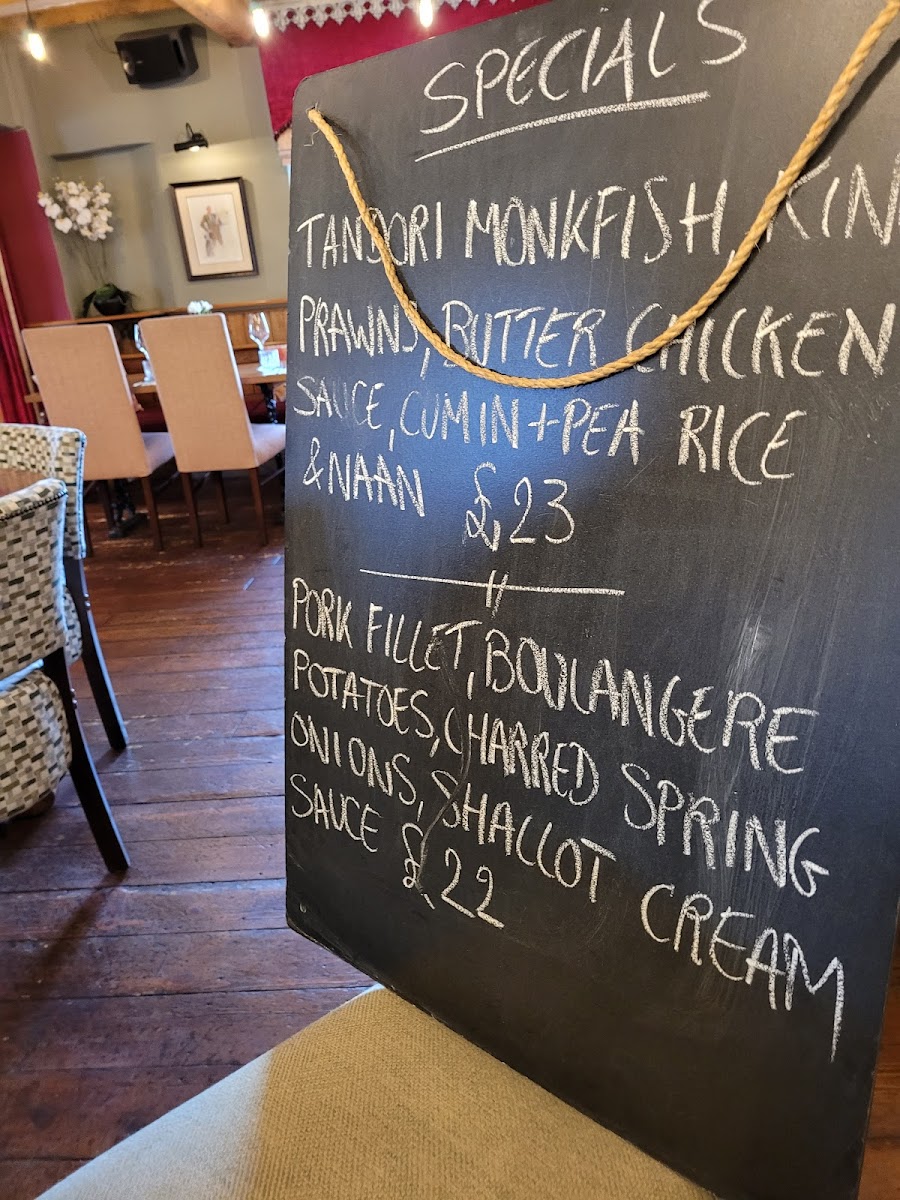 SPECIALS
TANDORI MONKFISH, KIN
PRAWNS, BUTTER CHICKEN
SAUCE, CUMIN + PEA RICE
& NAAN £23
PORK FILLET, BOULANGERE
POTATOES, CHARRED SPRING
ONIONS, SHALLOT CREAM
SAUCE £22